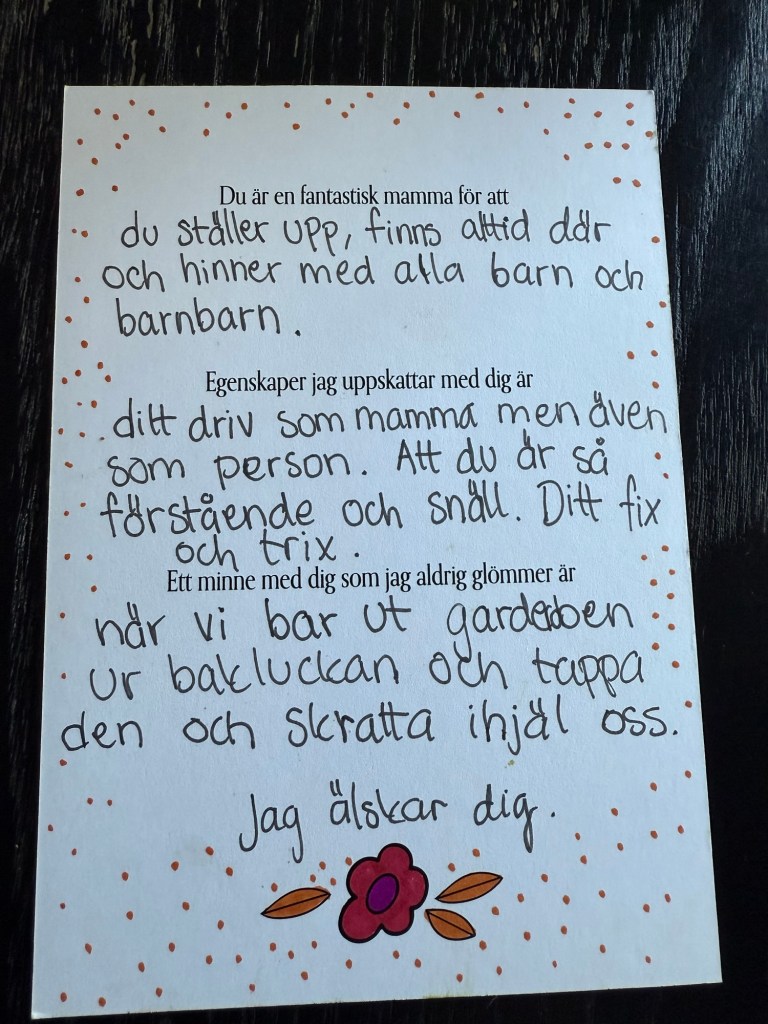 Du är en fantastisk mamma för att
du ställer upp, finns alltid där
och hinner med alla barn och
barnbarn.
Egenskaper jag uppskattar med dig är
ditt driv som mamma men även
som person. Att du är så
förstående och snäll. Ditt fix
och trix.
Ett minne med dig som jag aldrig glömmer är
när vi bar ut garderoben
ur bakluckan och tappa
den och skratta ihjäl oss.
Jag älskar dig.